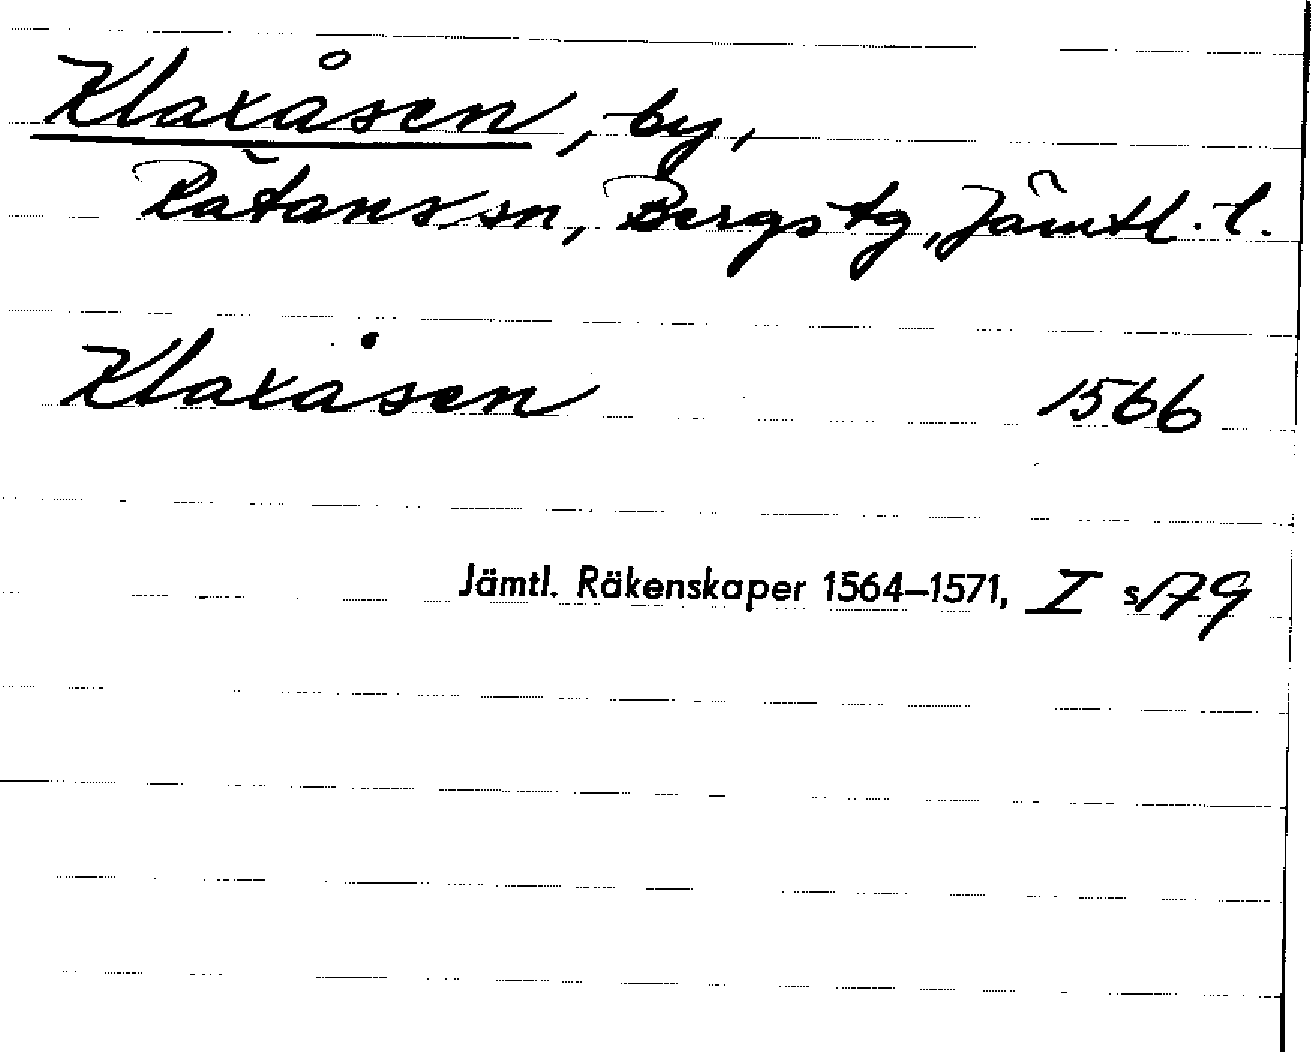 Klaxåsen, by,
Rätans sn, Bergs tg, Jämtl. l.
Klaxåsen 1566
Jämtl. Räkenskaper 1564–1571, I s. 179